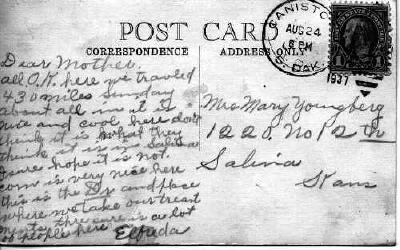 POST CARD
CORRESPONDENCE
ADDRESS ONLY
CANISTO
AUG 24
6 PM
S. DAK.
1937
Dear Mother.
all O.K. here we traveled
430 miles Sunday
about all in it is
nice and cool here don't
think it is what they
think it is in Salina
sure hope it is not.
corn is very nice here
this is the Dr and place
where we take our treat
ments there sure is a lot
of people here Elfreda
Mrs Mary Youngberg
1220. No 12 th
Salina
Kans